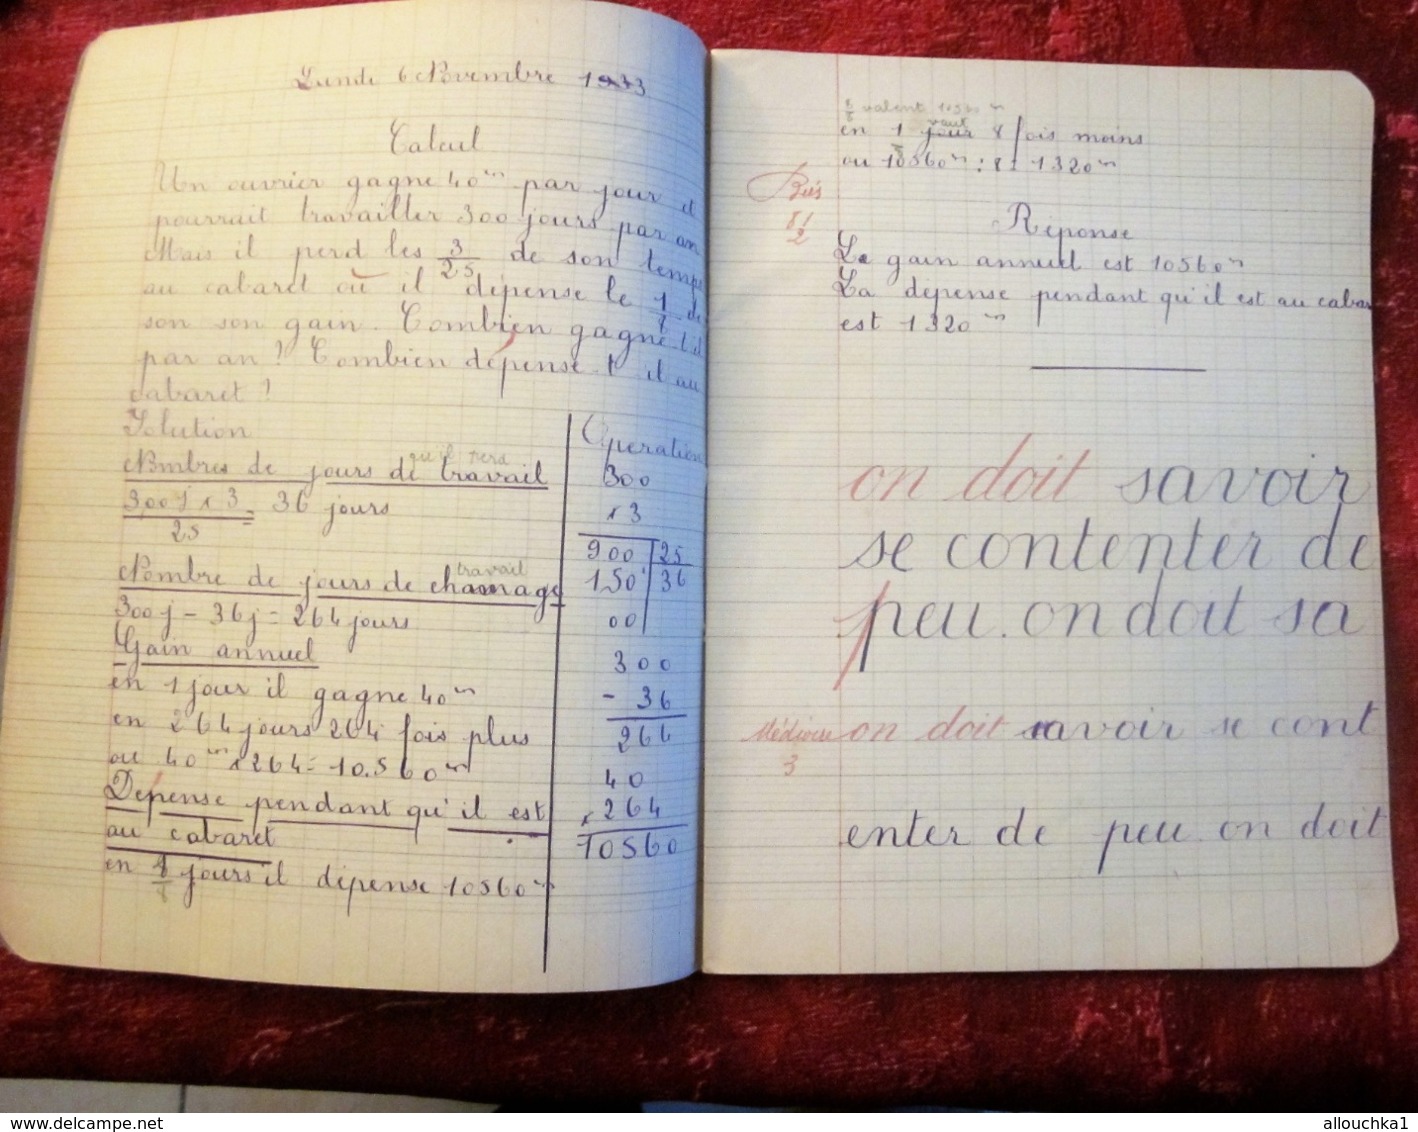 Lundi 6 Novembre 1933
Calcul
Un ouvrier gagne 40 par jour et
pourrait travailler 300 jours par an
Mais il perd les 3/25 de son temps
au cabaret où il dépense le 1/8 de
son son gain. Combien gagne t il
par an ? Combien dépense t il au
cabaret ?
Solution
qu'il perd
Nombres de jours de travail
300j x 3 = 36 jours
25
travail
Nombre de jours de chomage
300j - 36j = 264 jours
Gain annuel
en 1 jour il gagne 40
en 264 jours 264 fois plus
ou 40 x 264 = 10.560
Dépense pendant qu'il est
au cabaret
en 8/8 jours il dépense 10560
Operation
300
x 3
900 25
150 36
00
300
- 36
264
40
x 264
10560
8/8 valent 10560
vaut
en 1 jour 8 fois moins
ou 10560 : 8 = 1320
Bien
8 1/2
Réponse
Le gain annuel est 10560
La depense pendant qu'il est au cabar
est 1320
on doit savoir
se contenter de
peu. on doit sa
Médiocre on doit savoir se cont
3
enter de peu. on doit
www.delcampe.net
allouchka1